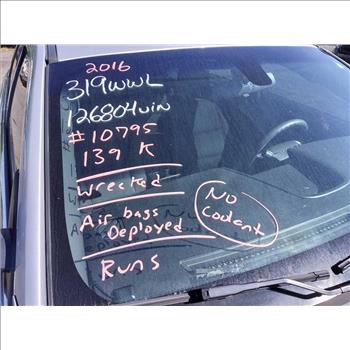 2016
319WWL
126804vin
#10795
139 K
Wrecked
Air bags
Deployed
No
Coolant
Runs